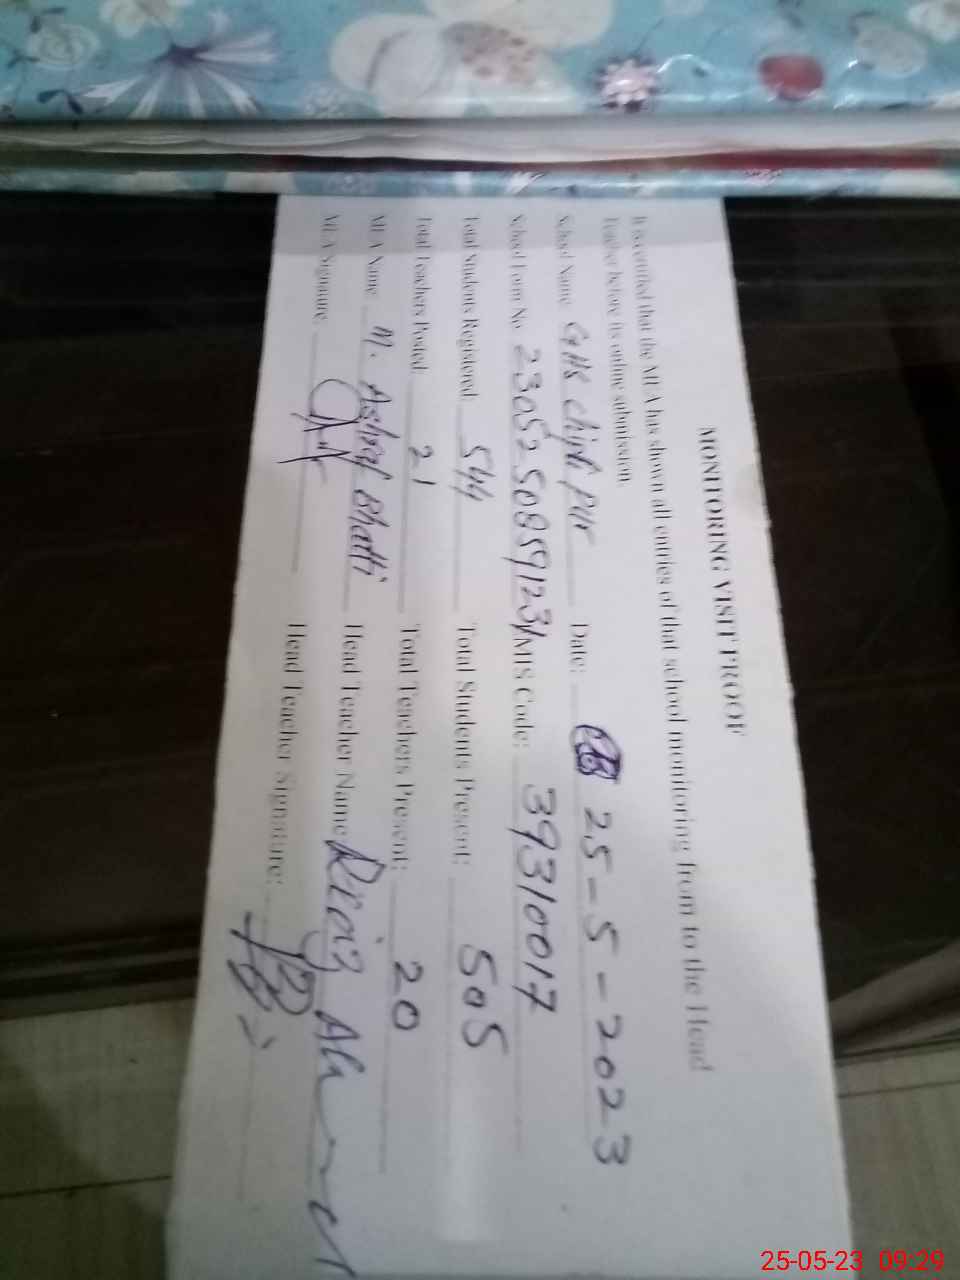 MONITORING VISIT PROOF
It is certified that the MEA has shown all entries of that school monitoring from to the Head
Teacher before its online submission.
School Name GHS Date: 25-5-2023
School Form No. 2305250859123 EMIS Code: 39310017
Total Students Registered: 544 Total Students Present: 505
Total Teachers Posted: 21 Total Teachers Present: 20
MEA Name M. Ashraf Bhatti Head Teacher Name Riaz Ahmed
MEA Signature: Head Teacher Signature:
25-05-23 09:29